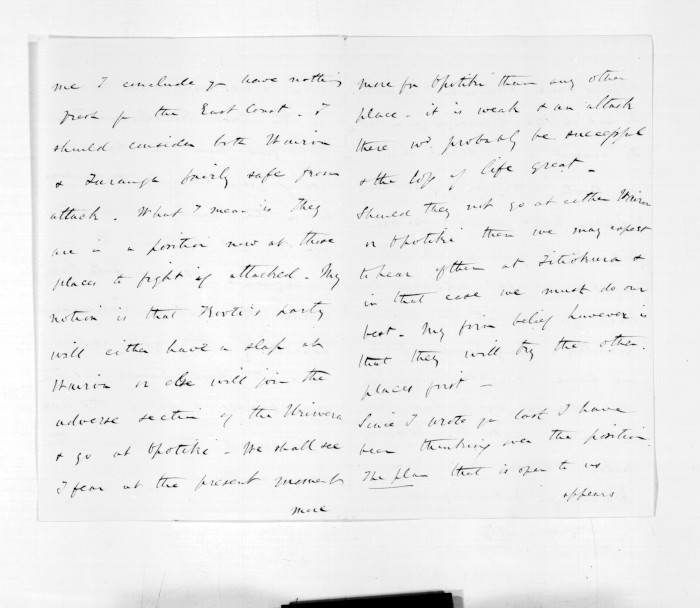 me I conclude yr have nothing
fresh fr the East Coast. I
should consider both Wairoa
& Turanga fairly safe from
attack. What I mean is they
are in a position now at those
places to fight if attacked. My
notion is that Kooti's party
will either have a slap at
Wairoa or else will join the
adverse section of the Uriwera
& go at Opotiki. We shall see
I fear at the present moment
more
more for Opotiki than any other
place. it is weak & an attack
there wd. probably be successful
& the loss of life great.
Should they not go at either Wairoa
or Opotiki then we may expect
to hear of them at Titiokura &
in that case we must do our
best. My firm belief however is
that they will try the other
places first —
Since I wrote yr last I have
been thinking over the position.
The plan that is open to us
appears